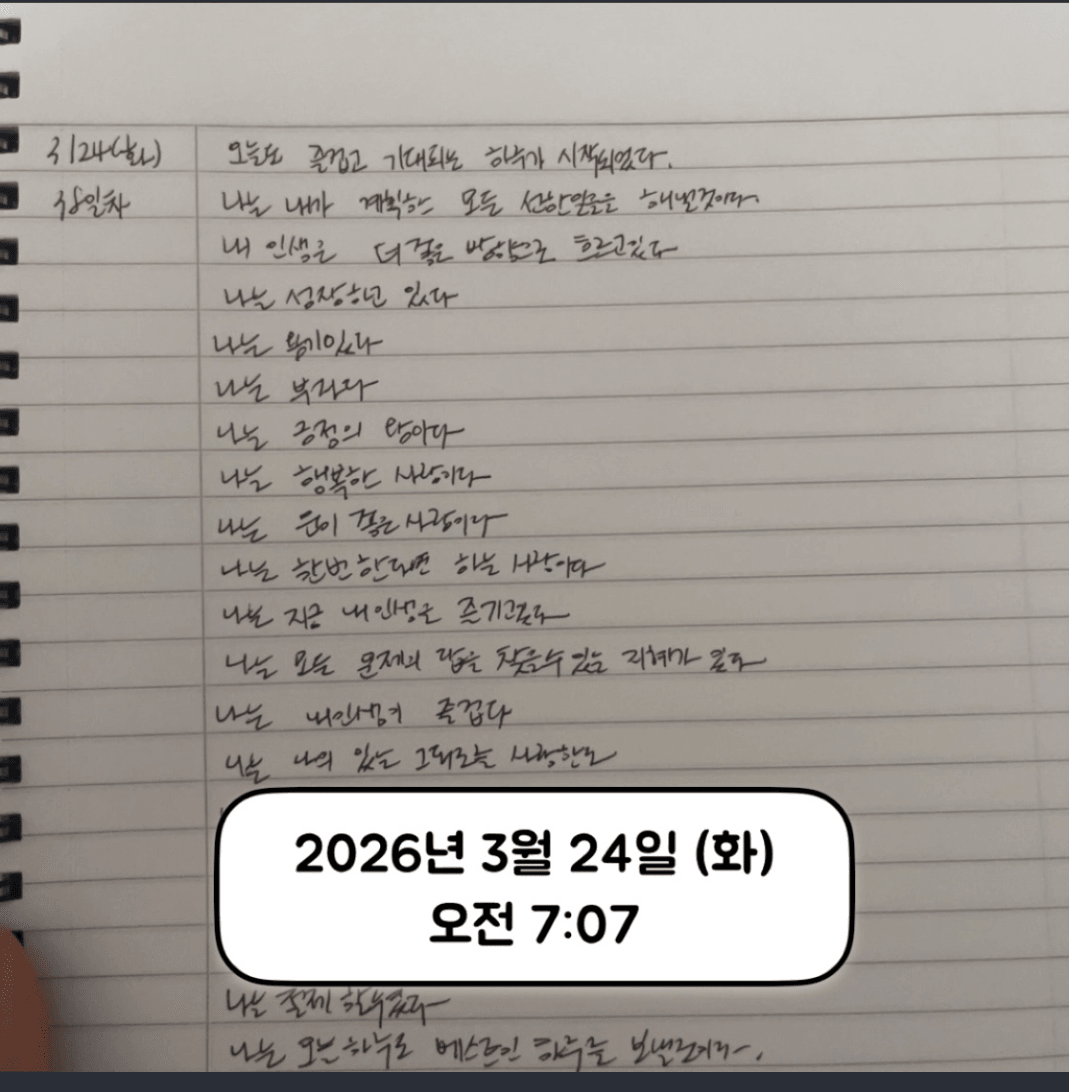 3/24(화)
오늘도 즐겁고 기대되는 하루가 시작되었다.
일차
나는 내가 계획한 모든 선한일들을 해낼것이다.
내 인생은 더 좋은 방향으로 흐르고있다
나는 성장하고 있다
나는 용기있다
나는 부자다
나는 긍정의 왕이다
나는 행복한 사람이다
나는 운이 좋은 사람이다
나는 한번 한다면 하는 사람이다
나는 지금 내 인생을 즐기고있다
나는 모든 문제의 답을 찾을수 있는 지혜가 있다
나는 내인생이 즐겁다
나는 나의 있는 그대로를 사랑한다
2026년 3월 24일 (화)
오전 7:07
나는 절제 할수있다
나는 오늘하루도 베스트인 하루를 보낼것이다.